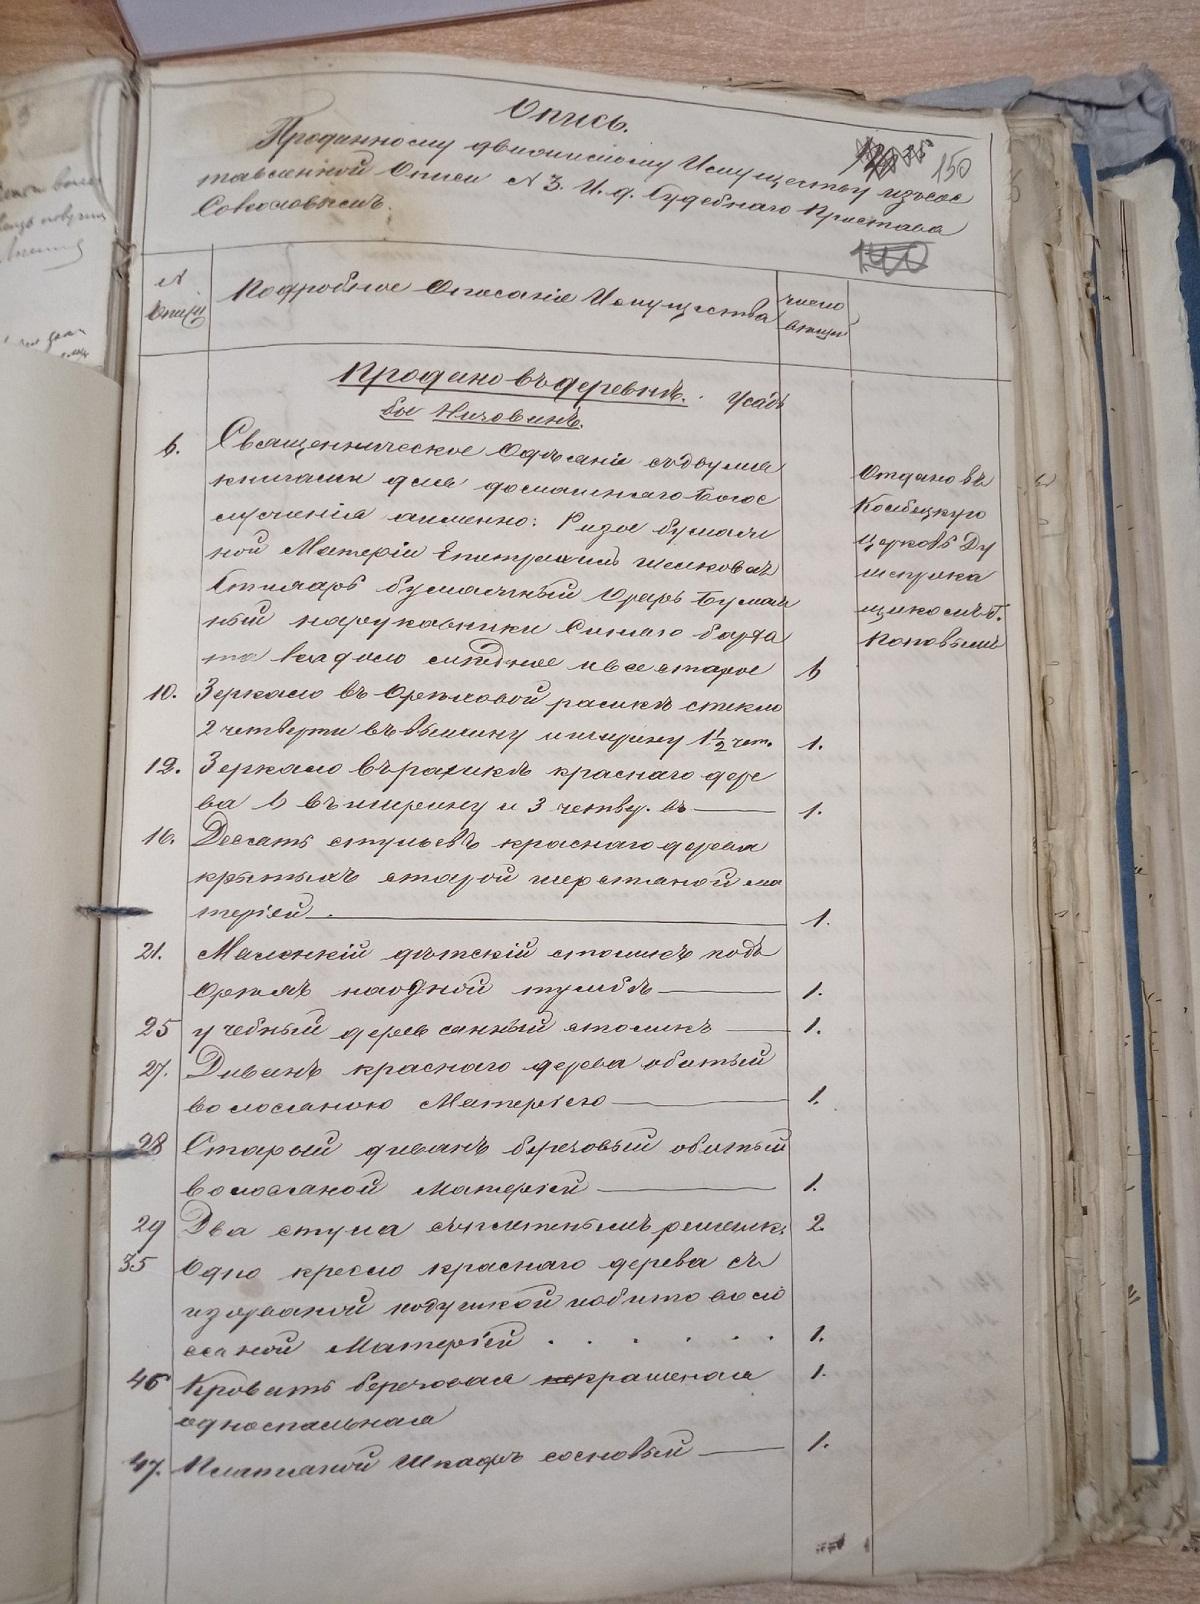 Опись.
Проданному движимому Имуществу изъ сос
тавленной Описи № 3. И. д. Судебнаго Пристава
Соколовымъ.
150
140
№
Описи
Подробное Описаніе Имущества
число
вещей
Продано въ деревнѣ. Усадь
бы Низовинъ.
6. Священническое Одѣяніе съ двумя
книгами для домашняго Богос
луженія аименно: Ризы бумаж
ной Матеріи Епитрахиль шелковая
Стихарь бумажный Орарь Бумаж
ный нарукавники Синяго барха
та все старое 6
Отдано въ
церковь Ду
Поповымъ
10. Зеркало въ Орѣховой рамкѣ стекло
2 четверти въ вышину и ширину 1½ чет. 1.
12. Зеркало въ рамкѣ краснаго дере
ва 1 въ ширину и 3 четвер. въ 1.
16. Десять стульевъ краснаго дерева
крытыхъ старой шерстяной ма
теріей 1.
21. Маленкій дѣтскій столикъ подъ
Орѣхъ на одной тумбѣ 1.
25 учебный деревянный столикъ 1.
27. Диванъ краснаго дерева обитый
волосяною Матеріею 1.
28 Старый диванъ березовый обитый
волосяной матеріей 1.
29 Два стула съ плетенымъ решетк. 2.
35 Одно кресло краснаго дерева съ
изорваной подушкой и обито воло
сяной Матеріей . . . . . . 1.
46 Кровать березовая некрашеная 1.
односпальная
47. Платяной Шкафъ сосновый 1.